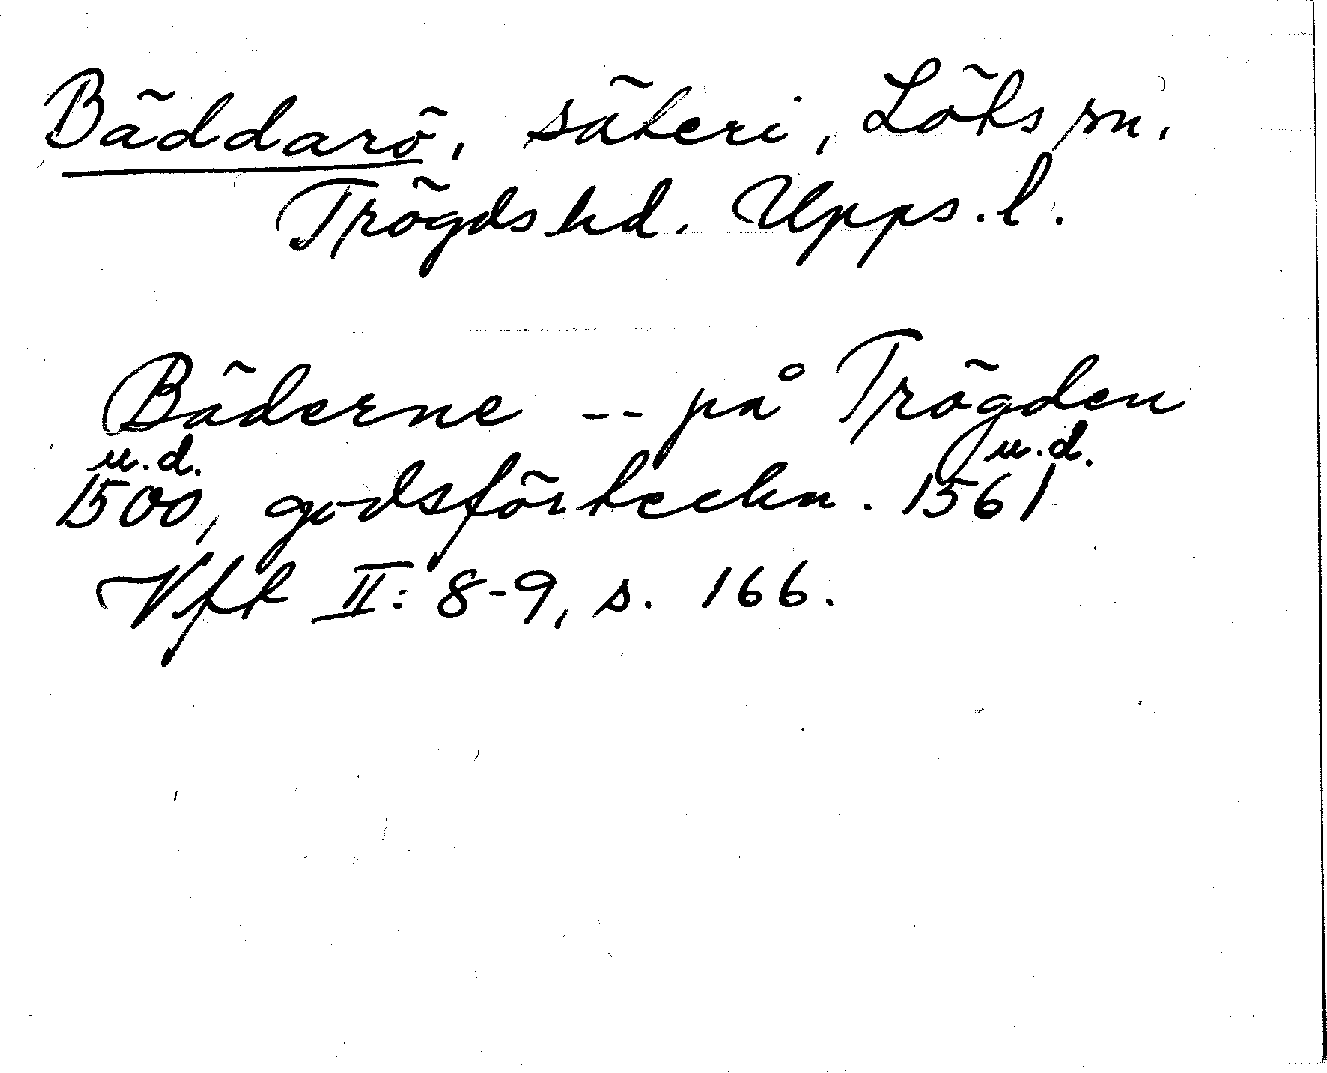 Bäddarö, säteri, Löts sn,
Trögds hd. Upps. l.
Bäderne -- på Trögden
u.d. u.d.
1500, godsförteckn. 1561
Vft II: 8-9, s. 166.